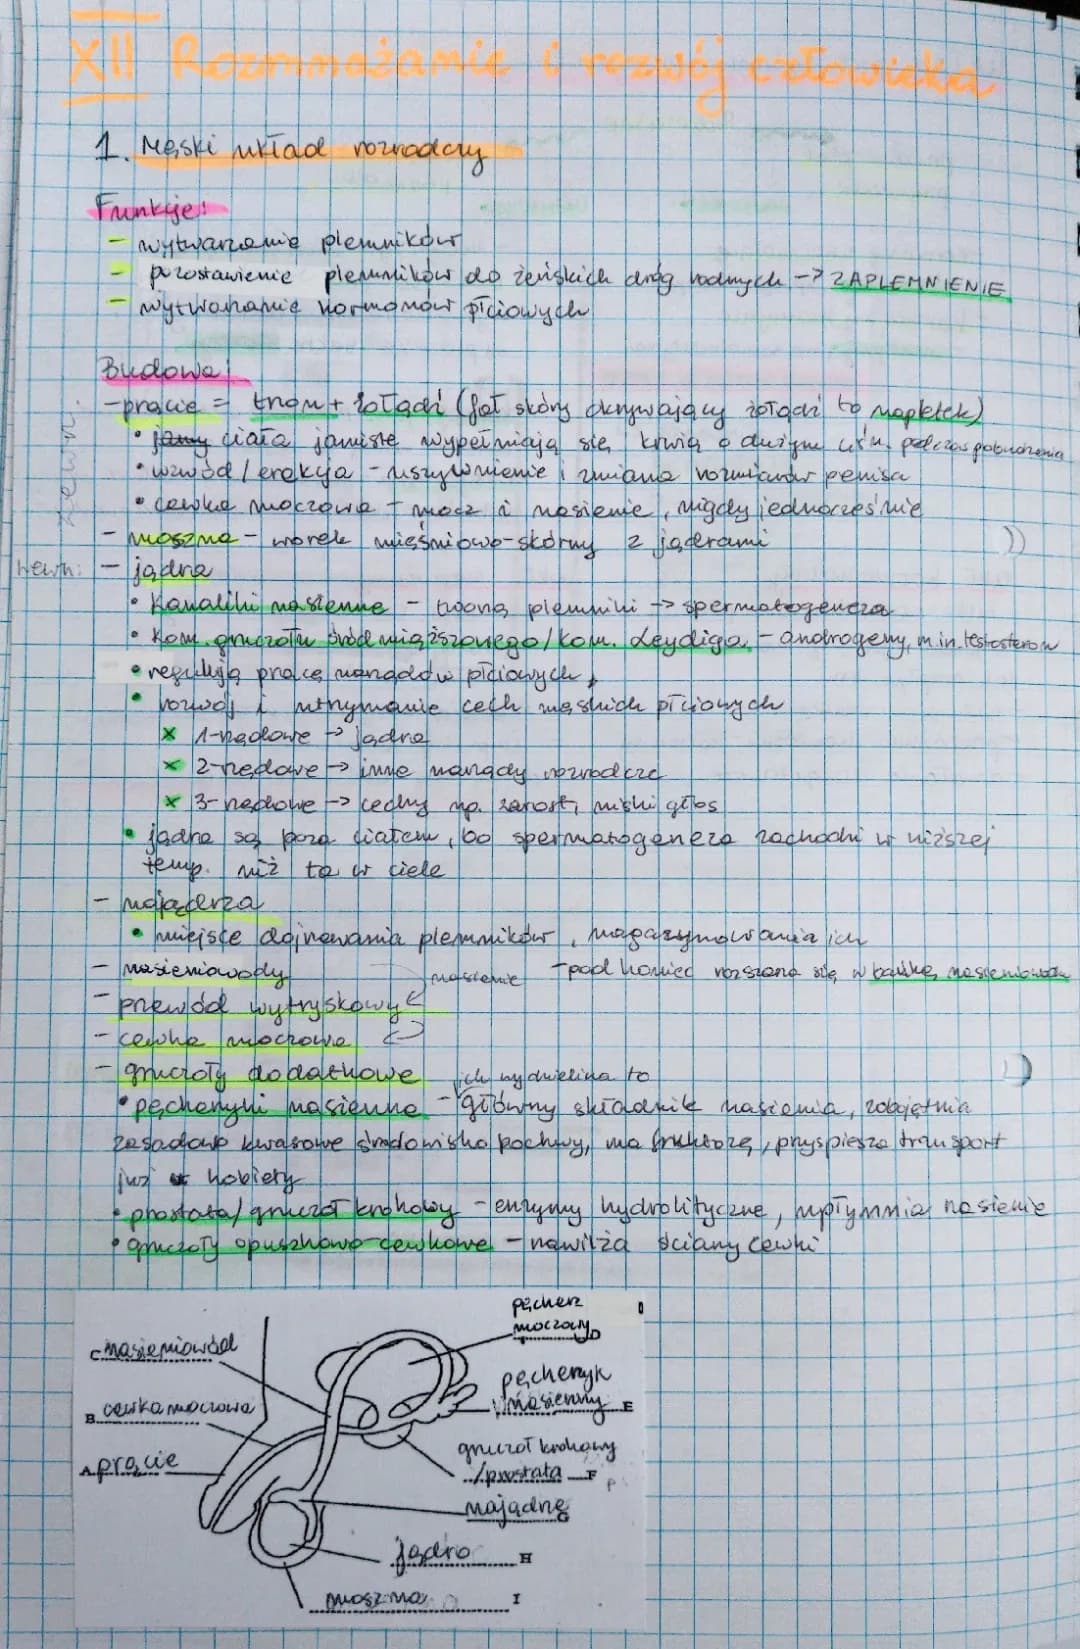 XII Rozmnażanie i rozwój człowieka
1. Męski układ rozrodczy
Funkcje:
- wytwarzanie plemników
- pozostawienie plemników do żeńskich dróg rodnych -> ZAPLEMNIENIE
- wytwarzanie hormonów płciowych
Budowa:
zewn.
- prącie = trzon + żołądź (fał skóry okrywający żołądź to napletek)
• jamy ciała jamiste wypełniają się krwią o dużym ciśn. podczas pobudzenia
• wzwód / erekcja - usztywnienie i zmiana rozmiarów penisa
• cewka moczowa - mocz i nasienie, nigdy jednocześnie
- moszna - worek mięśniowo-skórny z jądrami
wewn: - jądra
• kanaliki nasienne - tworzą plemniki -> spermatogeneza
• kom. gruczołu śródmiąższowego / kom. Leydiga - androgeny, m.in. testosteron
• regulują pracę narządów płciowych,
• rozwój i utrzymanie cech męskich płciowych
x 1-rzędowe -> jądra
x 2-rzędowe -> inne narządy rozrodcze
x 3-rzędowe -> cechy np. zarost, niski głos
• jądra są poza ciałem, bo spermatogeneza zachodzi w niższej
temp. niż ta w ciele
- najądrza
• miejsce dojrzewania plemników, magazynowania ich
- nasieniowody nasienie - pod koniec rozszerza się w bańkę nasieniowodu
- przewód wytryskowy
- cewka moczowa
- gruczoły dodatkowe ich wydzielina to
• pęcherzyki nasienne - główny składnik nasienia, zobojętnia
zasadowo kwasowe środowisko pochwy, ma fruktozę, przyspiesza transport
już u kobiety
• prostata / gruczoł krokowy - enzymy hydrolityczne, upłynnia nasienie
• gruczoły opuszkowo-cewkowe - nawilża ściany cewki
pęcherz
moczowy D
C nasieniowód
pęcherzyk
nasienny E
B. cewka moczowa
gruczoł krokowy
/prostata F
A. prącie
najądrze
jądro H
moszna I